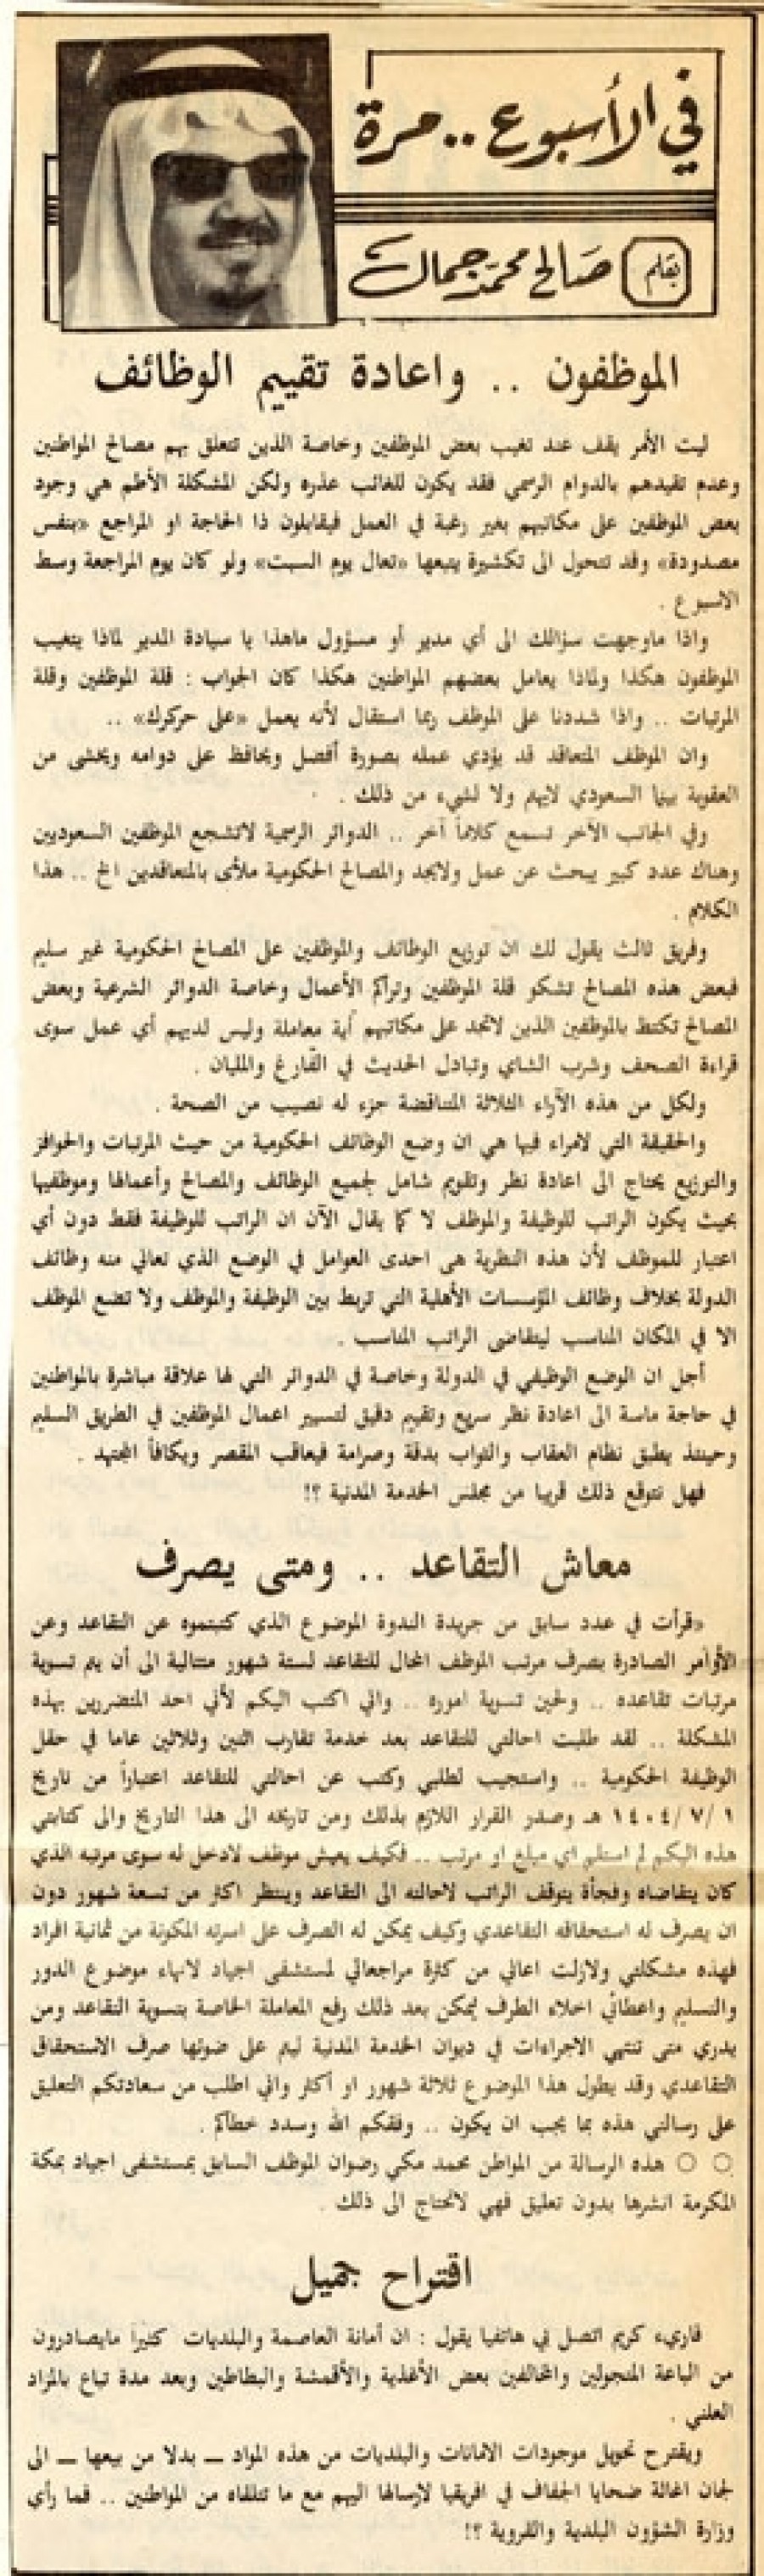 في الأسبوع .. مرة
بقلم صالح محمد جمال
الموظفون .. واعادة تقييم الوظائف
ليت الأمر يقف عند تغيب بعض الموظفين وخاصة الذين تتعلق بهم مصالح المواطنين
وعدم تقيدهم بالدوام الرسمي فقد يكون للغائب عذره ولكن المشكلة الأطم هي وجود
بعض الموظفين على مكاتبهم بغير رغبة في العمل فيقابلون ذا الحاجة او المراجع «بنفس
مصدودة» وقد تتحول الى تكشيرة يتبعها «تعال يوم السبت» ولو كان يوم المراجعة وسط
الاسبوع .
واذا ماوجهت سؤالك الى أي مدير أو مسؤول ماهذا يا سيادة المدير لماذا يتغيب
الموظفون هكذا ولماذا يعامل بعضهم المواطنين هكذا كان الجواب : قلة الموظفين وقلة
المرتبات .. واذا شددنا على الموظف ربما استقال لأنه يعمل «على حركرك» ..
وان الموظف المتعاقد قد يؤدي عمله بصورة أفضل ويحافظ على دوامه ويخشى من
العقوبة بينما السعودي لايهتم ولا لشيء من ذلك .
وفي الجانب الآخر تسمع كلاماً آخر .. الدوائر الرسمية لاتشجع الموظفين السعوديين
وهناك عدد كبير يبحث عن عمل ولايجد والمصالح الحكومية ملأى بالمتعاقدين الخ .. هذا
الكلام .
وفريق ثالث يقول لك ان توزيع الوظائف والموظفين على المصالح الحكومية غير سليم
فبعض هذه المصالح تشكو قلة الموظفين وتراكم الأعمال وخاصة الدوائر الشرعية وبعض
المصالح تكتظ بالموظفين الذين لاتجد على مكاتبهم أية معاملة وليس لديهم أي عمل سوى
قراءة الصحف وشرب الشاي وتبادل الحديث في الفارغ والمليان .
ولكل من هذه الآراء الثلاثة المتناقضة جزء له نصيب من الصحة .
والحقيقة التي لامراء فيها هي ان وضع الوظائف الحكومية من حيث المرتبات والحوافز
والتوزيع يحتاج الى اعادة نظر وتقويم شامل لجميع الوظائف والمصالح وأعمالها وموظفيها
بحيث يكون الراتب للوظيفة والموظف لا كما يقال الآن ان الراتب للوظيفة فقط دون أي
اعتبار للموظف لأن هذه النظرية هي احدى العوامل في الوضع الذي تعاني منه وظائف
الدولة بخلاف وظائف المؤسسات الأهلية التي تربط بين الوظيفة والموظف ولا تضع الموظف
الا في المكان المناسب ليتقاضى الراتب المناسب .
أجل ان الوضع الوظيفي في الدولة وخاصة في الدوائر التي لها علاقة مباشرة بالمواطنين
في حاجة ماسة الى اعادة نظر سريع وتقييم دقيق لتسيير اعمال الموظفين في الطريق السليم
وحينئذ يطبق نظام العقاب والثواب بدقة وصرامة فيعاقب المقصر ويكافأ المجتهد .
فهل نتوقع ذلك قريبا من مجلس الخدمة المدنية ؟!
معاش التقاعد .. ومتى يصرف
«قرأت في عدد سابق من جريدة الندوة الموضوع الذي كتبتموه عن التقاعد وعن
الأوامر الصادرة بصرف مرتب الموظف المحال للتقاعد لستة شهور متتالية الى أن يتم تسوية
مرتبات تقاعده .. ولحين تسوية اموره .. واني اكتب اليكم لأني احد المتضررين بهذه
المشكلة .. لقد طلبت احالتي للتقاعد بعد خدمة تقارب اثنين وثلاثين عاما في حقل
الوظيفة الحكومية .. واستجيب لطلبي وكتب عن احالتي للتقاعد اعتباراً من تاريخ
١ /٧ /١٤٠٤ هـ وصدر القرار اللازم بذلك ومن تاريخه الى هذا التاريخ والى كتابتي
هذه اليكم لم استلم اي مبلغ او مرتب .. فكيف يعيش موظف لادخل له سوى مرتبه الذي
كان يتقاضاه وفجأة يتوقف الراتب لاحالته الى التقاعد وينتظر اكثر من تسعة شهور دون
ان يصرف له استحقاقه التقاعدي وكيف يمكن له الصرف على اسرته المكونة من ثمانية افراد
فهذه مشكلتي ولازلت اعاني من كثرة مراجعاتي لمستشفى اجياد لانهاء موضوع الدور
والتسليم واعطائي اخلاء الطرف ليمكن بعد ذلك رفع المعاملة الخاصة بتسوية التقاعد ومن
يدري متى تنتهي الاجراءات في ديوان الخدمة المدنية ليتم على ضوئها صرف الاستحقاق
التقاعدي وقد يطول هذا الموضوع ثلاثة شهور او أكثر واني اطلب من سعادتكم التعليق
على رسالتي هذه بما يجب ان يكون .. وفقكم الله وسدد خطاكم .
○ ○ هذه الرسالة من المواطن محمد مكي رضوان الموظف السابق بمستشفى اجياد بمكة
المكرمة انشرها بدون تعليق فهي لاتحتاج الى ذلك .
اقتراح جميل
قاريء كريم اتصل بي هاتفيا يقول : ان أمانة العاصمة والبلديات كثيراً مايصادرون
من الباعة المتجولين والمخالفين بعض الأغذية والأقمشة والبطاطين وبعد مدة تباع بالمزاد
العلني .
ويقترح تحويل موجودات الامانات والبلديات من هذه المواد ــ بدلا من بيعها ــ الى
لجان اغاثة ضحايا الجفاف في افريقيا لارسالها اليهم مع ما تتلقاه من المواطنين .. فما رأي
وزارة الشؤون البلدية والقروية ؟!